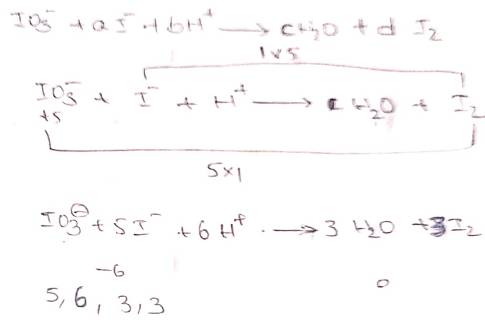 IO₃⁻ + aI⁻ + bH⁺ → cH₂O + d I₂
1×5
IO₃⁻ + I⁻ + H⁺ → H₂O + I₂
+5
5×1
IO₃⁻ + 5I⁻ + 6H⁺ → 3 H₂O + 3I₂
-6
0
5, 6, 3, 3